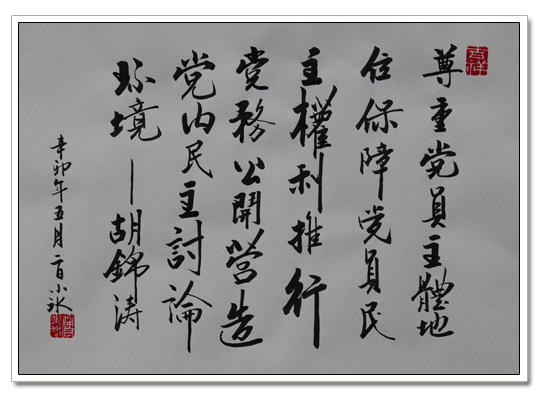 吉祥
尊重党員主體地
位保障党員民
主權利推行
党務公開營造
党内民主討論
环境—胡錦涛
辛卯年五月